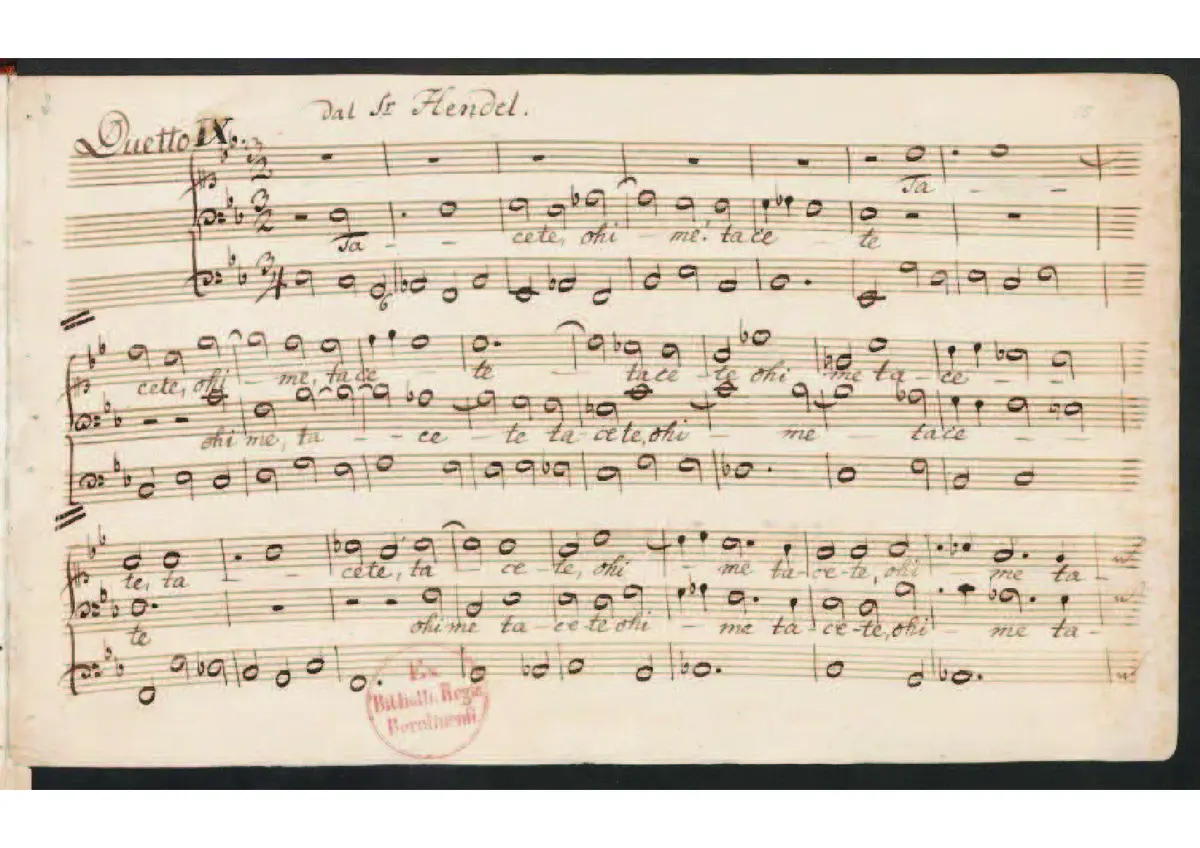 dal Sr Hendel.
Duetto IX.
3 2
Ta - - -
3 2
Ta - - cete, ohi - me! tace - te
3 4
6
cete, ohi - me, tace - te - tace - te ohi me ta - ce - -
ohi me, ta - - ce - te ta - cete, ohi - me - tace - -
te, ta - - cete, ta - ce - te, ohi - me ta - ce - te, ohi - me ta -
te ohi me ta - ce te ohi - me ta - ce - te, ohi - me ta -
Ex
Biblioth. Regia
Berolinensi